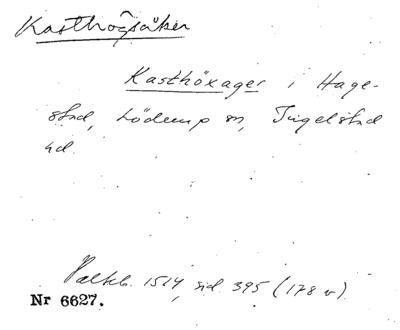 Kasthögsåker
Kasthöxager i Hage-
stad, Löderup sn, Ingelstad
hd.
Palteb. 1514, sid. 395 (178 v).
Nr 6627.